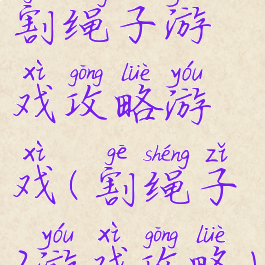 割绳子游
xì gōng lüè yóu
戏攻略游
xì gē shéng zǐ
戏(割绳子
yóu xì gōng lüè
游戏攻略)